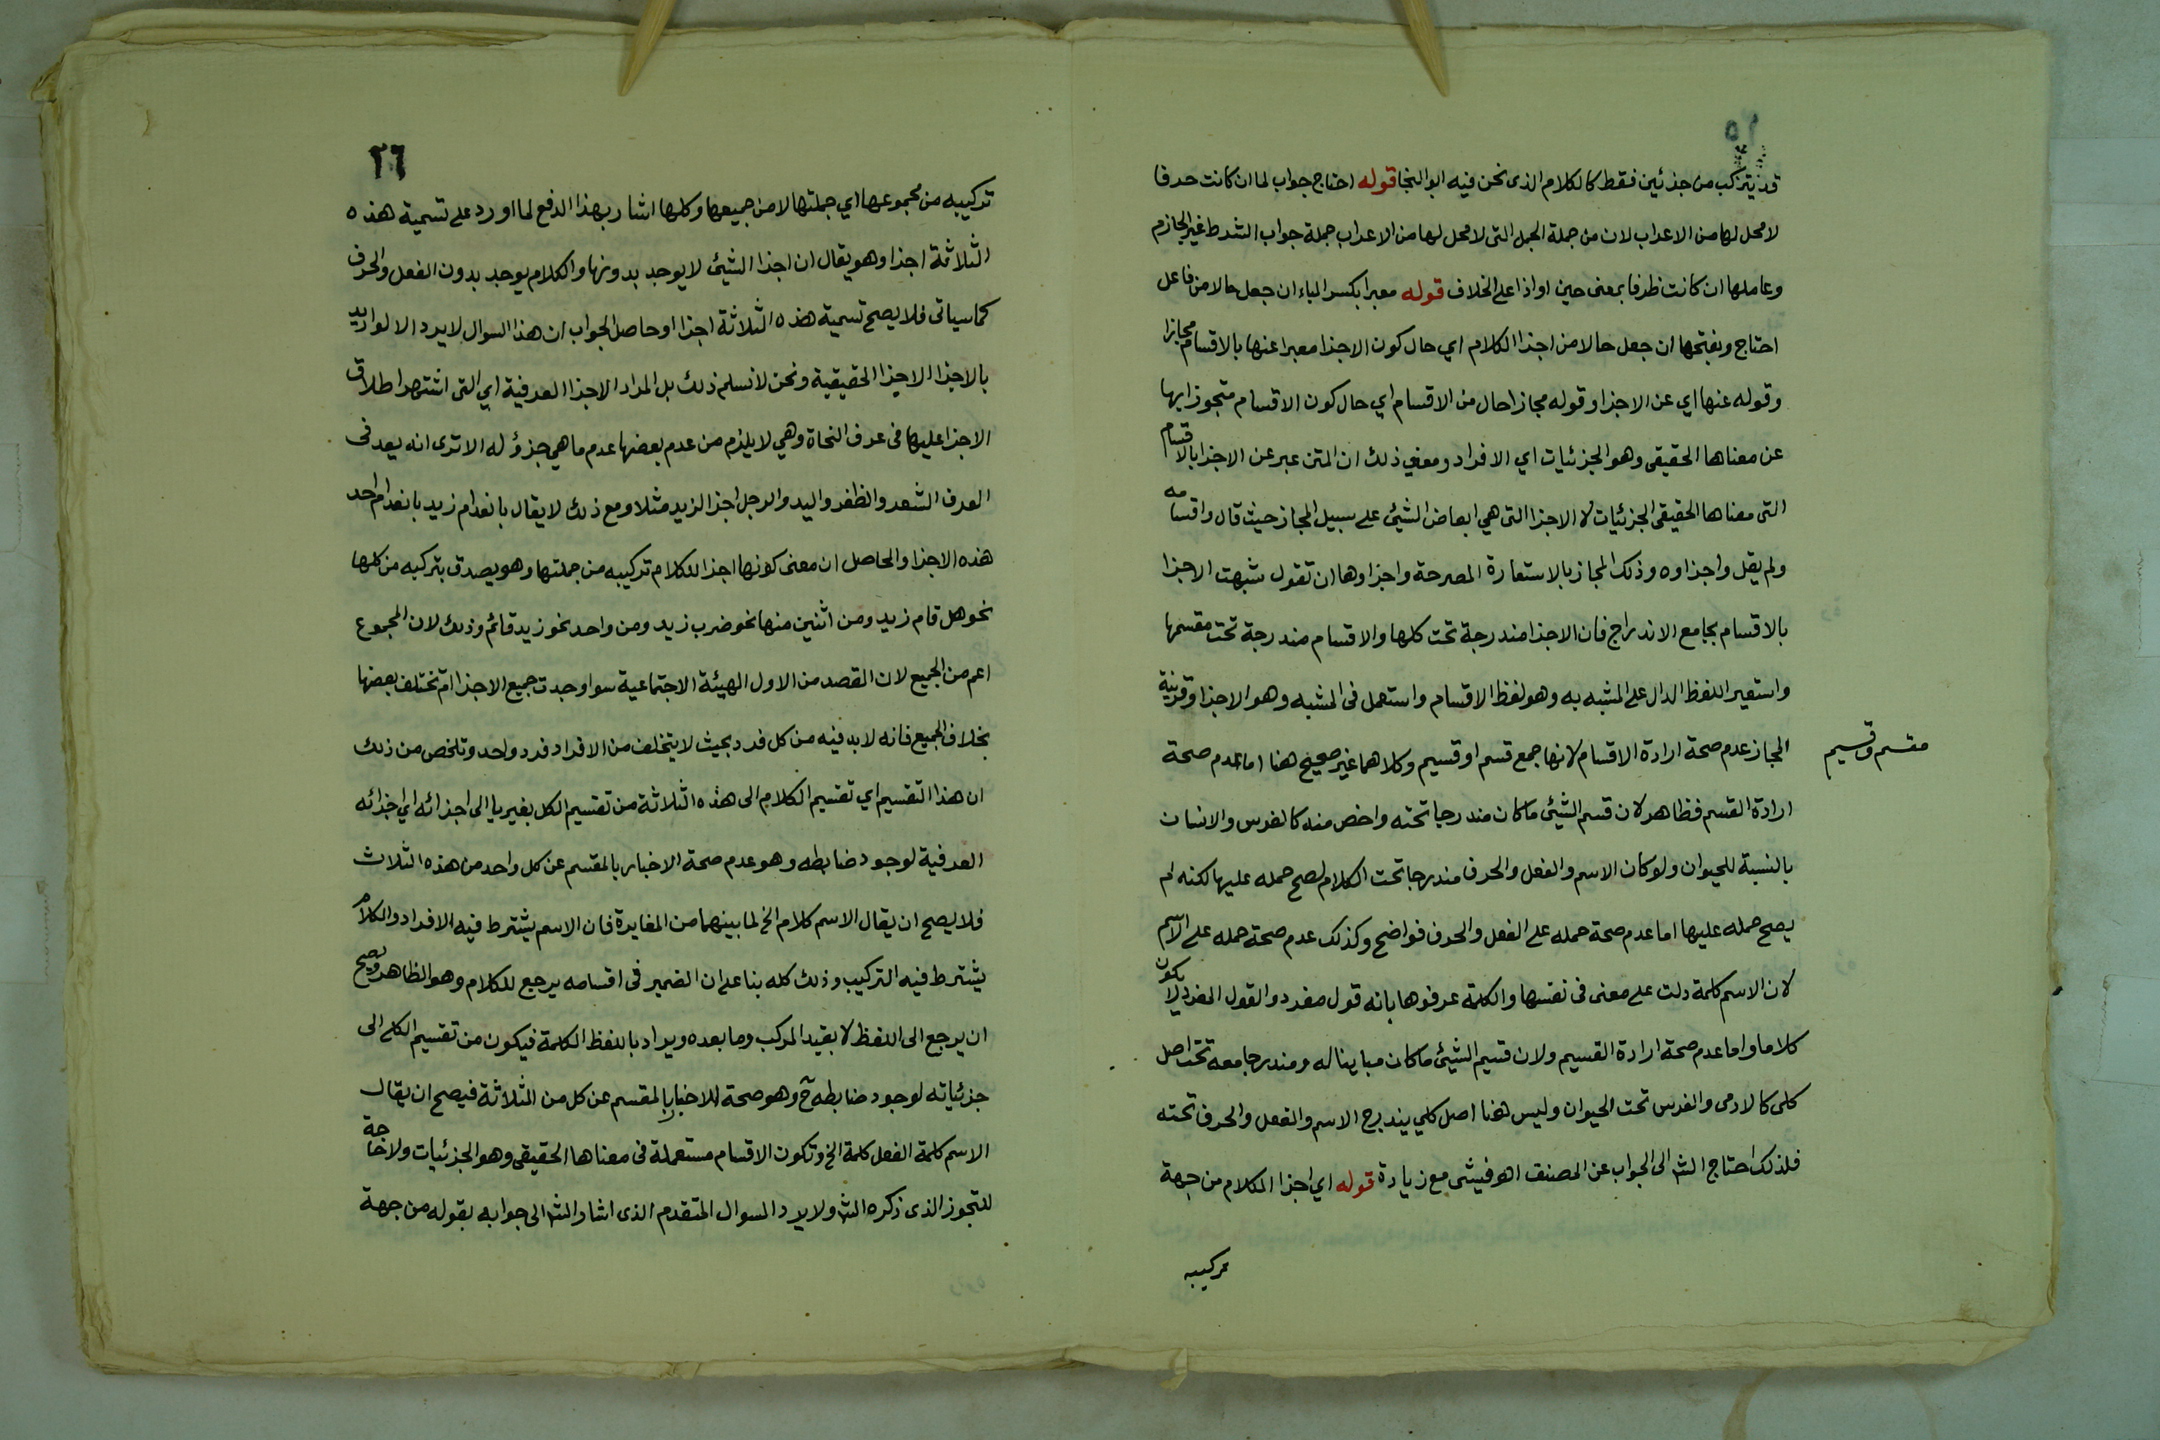 ٢٥
قد يتركب من جزئين فقط كالكلام الذى نحن فيه ابو النجا قوله احتاج جواب لما ان كانت حرفا
لا محل لها من الاعراب لان من جملة الجمل التى لا محل لها من الاعراب جملة جواب الشرط غير الجازم
وعاملها ان كانت ظرفا بمعنى حين او اذا على الخلاف قوله معبرا بكسر الباء ان جعل حالا من فاعل
احتاج وبفتحها ان جعل حالا من اجزا الكلام اي حال كون الاجزا معبرا عنها بالاقسام مجازا
وقوله عنها اي عن الاجزا وقوله مجازا حال من الاقسام اي حال كون الاقسام متجوزا بها
عن معناها الحقيقى وهو الجزئيات اي الافراد ومعنى ذلك ان المتن عبر عن الاجزا بالاقسام
التى معناها الحقيقى الجزئيات لا الاجزا التى هي ابعاض الشيئ على سبيل المجاز حيث قال واقسامه
ولم يقل واجزاوه وذلك المجاز بالاستعارة المصرحة واجراوها ان تقول شبهت الاجزا
بالاقسام بجامع الاندراج فان الاجزا مندرجة تحت كلها والاقسام مندرجة تحت مقسمها
واستعير اللفظ الدال على المشبه به وهو لفظ الاقسام واستعمل فى المشبه وهو الاجزا وقرينة
المجاز عدم صحة ارادة الاقسام لانها جمع قسم او قسيم وكلاهما غير صحيح هنا اما عدم صحة
مقسم وقسيم
ارادة القسم فظاهر لان قسم الشيئ ما كان مندرجا تحته واخص منه كالفرس والانسان
بالنسبة للحيوان ولو كان الاسم والفعل والحرف مندرجا تحت الكلام لصح حمله عليها لكنه لم
يصح حمله عليها اما عدم صحة حمله على الفعل والحرف فواضح وكذلك عدم صحة حمله على الاسم
لان الاسم كلمة دلت على معنى فى نفسها والكلمة عرفوها بانه قول مفرد والقول المفرد لا يكون
كلاما واما عدم صحة ارادة القسيم ولان قسيم الشيئ ما كان مباينا له ومندرجا معه تحت اصل
كلى كالادمى والفرس تحت الحيوان وليس هنا اصل كلي يندرج الاسم والفعل والحرف تحته
فلذلك احتاج الش الى الجواب عن المصنف اهو فيشى مع زيادة قوله اي اجزا الكلام من جهة
تركيبه
٢٦
تركيبه من مجموعها اي جملتها لا من جميعها وكلها اشار بهذا الدفع لما اورد على تسمية هذه
الثلاثة اجزا وهو يقال ان اجزا الشيئ لا يوجد بدونها والكلام يوجد بدون الفعل والحرف
كما سياتى فلا يصح تسمية هذه الثلاثة اجزا وحاصل الجواب ان هذا السوال لا يرد الا لو اريد
بالاجزا الاجزا الحقيقية ونحن لا نسلم ذلك بل المراد الاجزا العرفية اي التى اشتهر اطلاق
الاجزا عليها فى عرف النحاة وهي لا يلزم من عدم بعضها عدم ما هي جزؤ له الا ترى انه يعد فى
العرف الشعر والظفر واليد والرجل اجزا لزيد مثلا ومع ذلك لا يقال بانعدام زيد بانعدام احد
هذه الاجزا والحاصل ان معنى كونها اجزا للكلام تركيبه من جملتها وهو يصدق بتركبه من كلها
نحو هل قام زيد ومن اثنين منها نحو ضرب زيد ومن واحد نحو زيد قائم وذلك لان المجموع
اعم من الجميع لان القصد من الاول الهيئة الاجتماعية سوا وجدت جميع الاجزا ام تختلف بعضها
بخلاف الجميع فانه لا بد فيه من كل فرد بحيث لا يتخلف من الافراد فرد واحد وتلخص من ذلك
ان هذا التقسيم اي تقسيم الكلام الى هذه الثلاثة من تقسيم الكل بغير يا الى اجزائه اي اجزائه
العرفية لوجود ضابطه وهو عدم صحة الاخبار بالمقسم عن كل واحد من هذه الثلاث
فلا يصح ان يقال الاسم كلام الخ لما بينهما من المغايرة فان الاسم يشترط فيه الافراد والكلام
يشترط فيه التركيب وذلك كله بنا على ان الضمير فى اقسامه يرجع للكلام وهو الظاهر ويصح
ان يرجع الى اللفظ لا بقيد المركب وما بعده ويراد باللفظ الكلمة فيكون من تقسيم الكلى الى
جزئياته لوجود ضابطه ح وهو صحة الاخبار بالمقسم عن كل من الثلاثة فيصح ان يقال
الاسم كلمة الفعل كلمة الخ وتكون الاقسام مستعملة فى معناها الحقيقى وهو الجزئيات ولا حاجة
للتجوز الذى ذكره الش ولا يرد السوال المتقدم الذى اشار الش الى جوابه بقوله من جهة